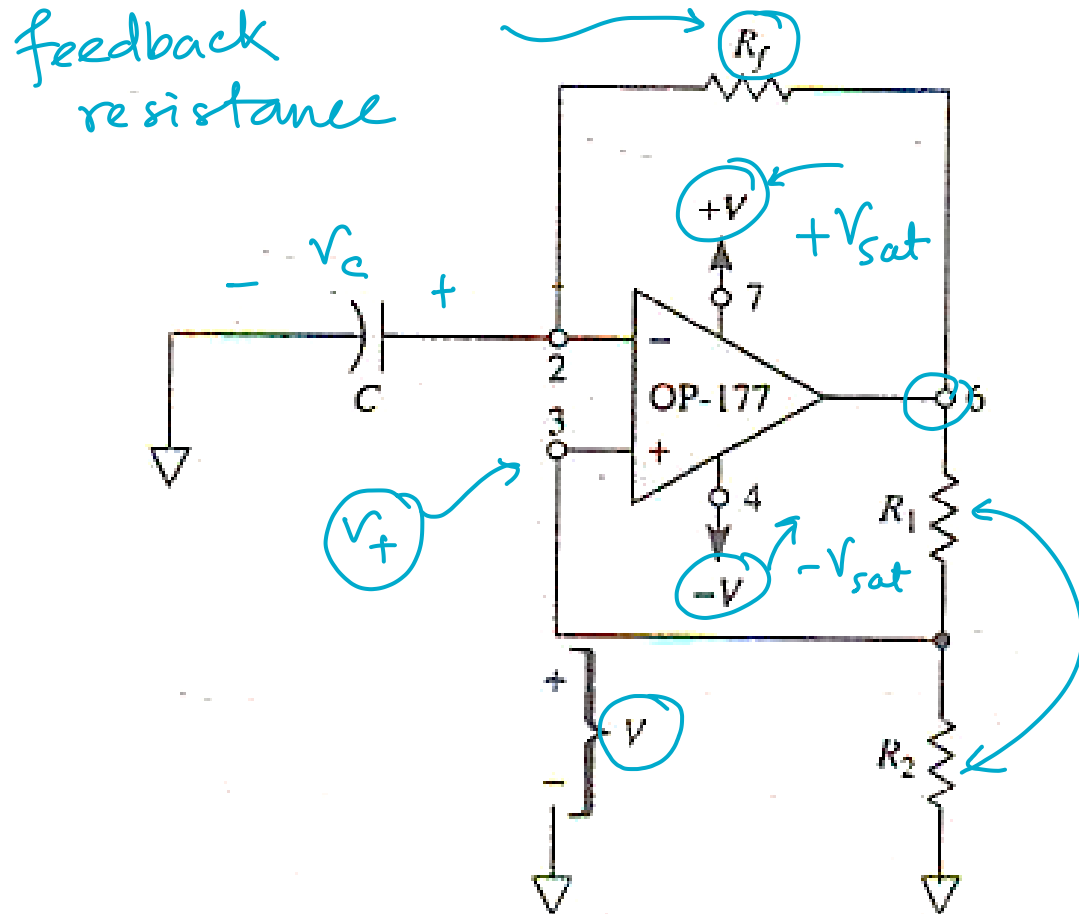 feedback
resistance
R_f
+V
+V_sat
v_c
- +
7
2
-
C
OP-177
6
3
+
4
R_1
V_+
-V
-V_sat
+
V
-
R_2